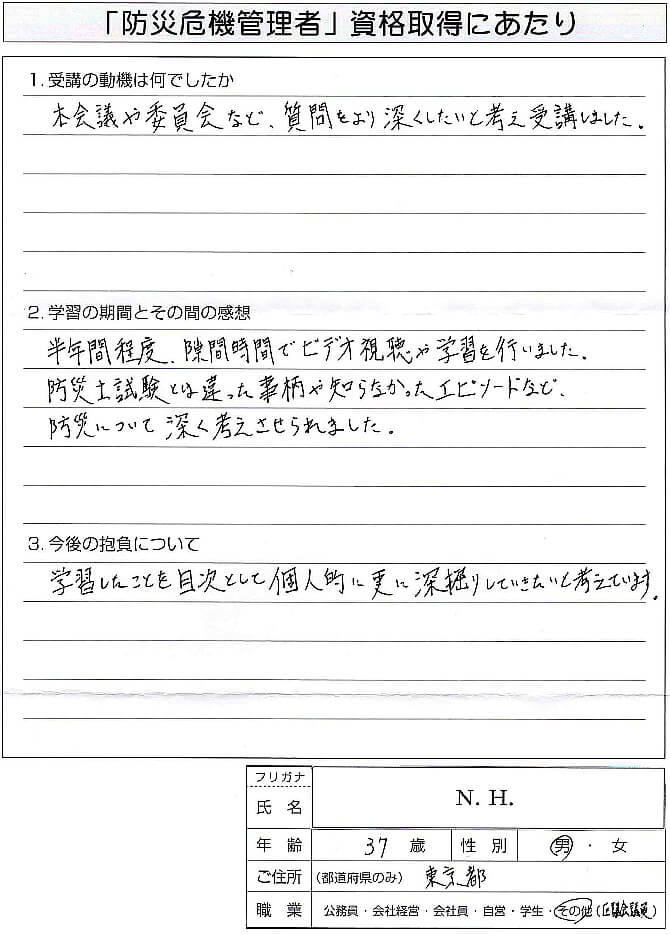 「防災危機管理者」資格取得にあたり
1.受講の動機は何でしたか
本会議や委員会など、質問をより深くしたいと考え受講しました。
2.学習の期間とその間の感想
半年間程度、隙間時間でビデオ視聴や学習を行いました。
防災士試験とは違った事柄や知らなかったエピソードなど、
防災について深く考えさせられました。
3.今後の抱負について
学習したことを目次として個人的に更に深掘りしていきたいと考えています。
フリガナ
氏名 N. H.
年齢 37 歳 性別 男・女
ご住所 (都道府県のみ) 東京都
職業 公務員・会社経営・会社員・自営・学生・その他(区議会議員)